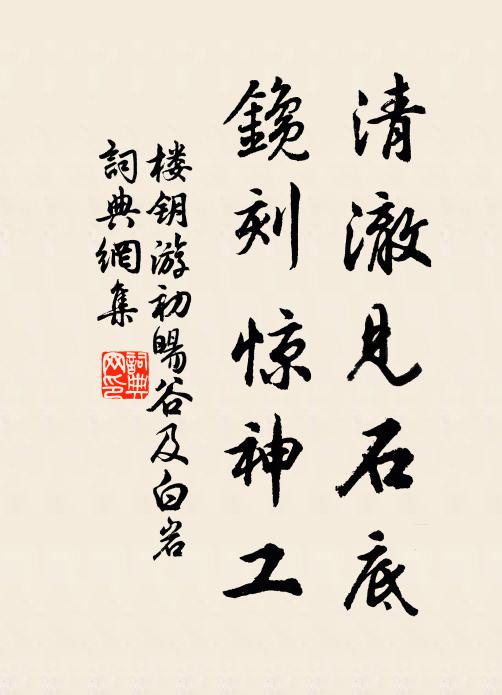 清澈见石底
鑱刻惊神工
楼钥游初暘谷及白岩
詞典網集
詞典
网印